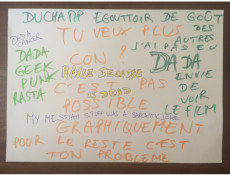 DUCHAMP EGOUTOIR DE GOÛT
TU VEUX PLUS
DES AUTRES
J'AI PAS EU
DADA
GEEK
PUNK
RASTA
CON ?
DADA
ENVIE
DE VOIR
LE FILM
C'EST PAS
POSSIBLE
MY MESSIAH STUFF WAS A SARCASTIC JOKE
GRAPHIQUEMENT
POUR LE RESTE C'EST
TON PROBLEME